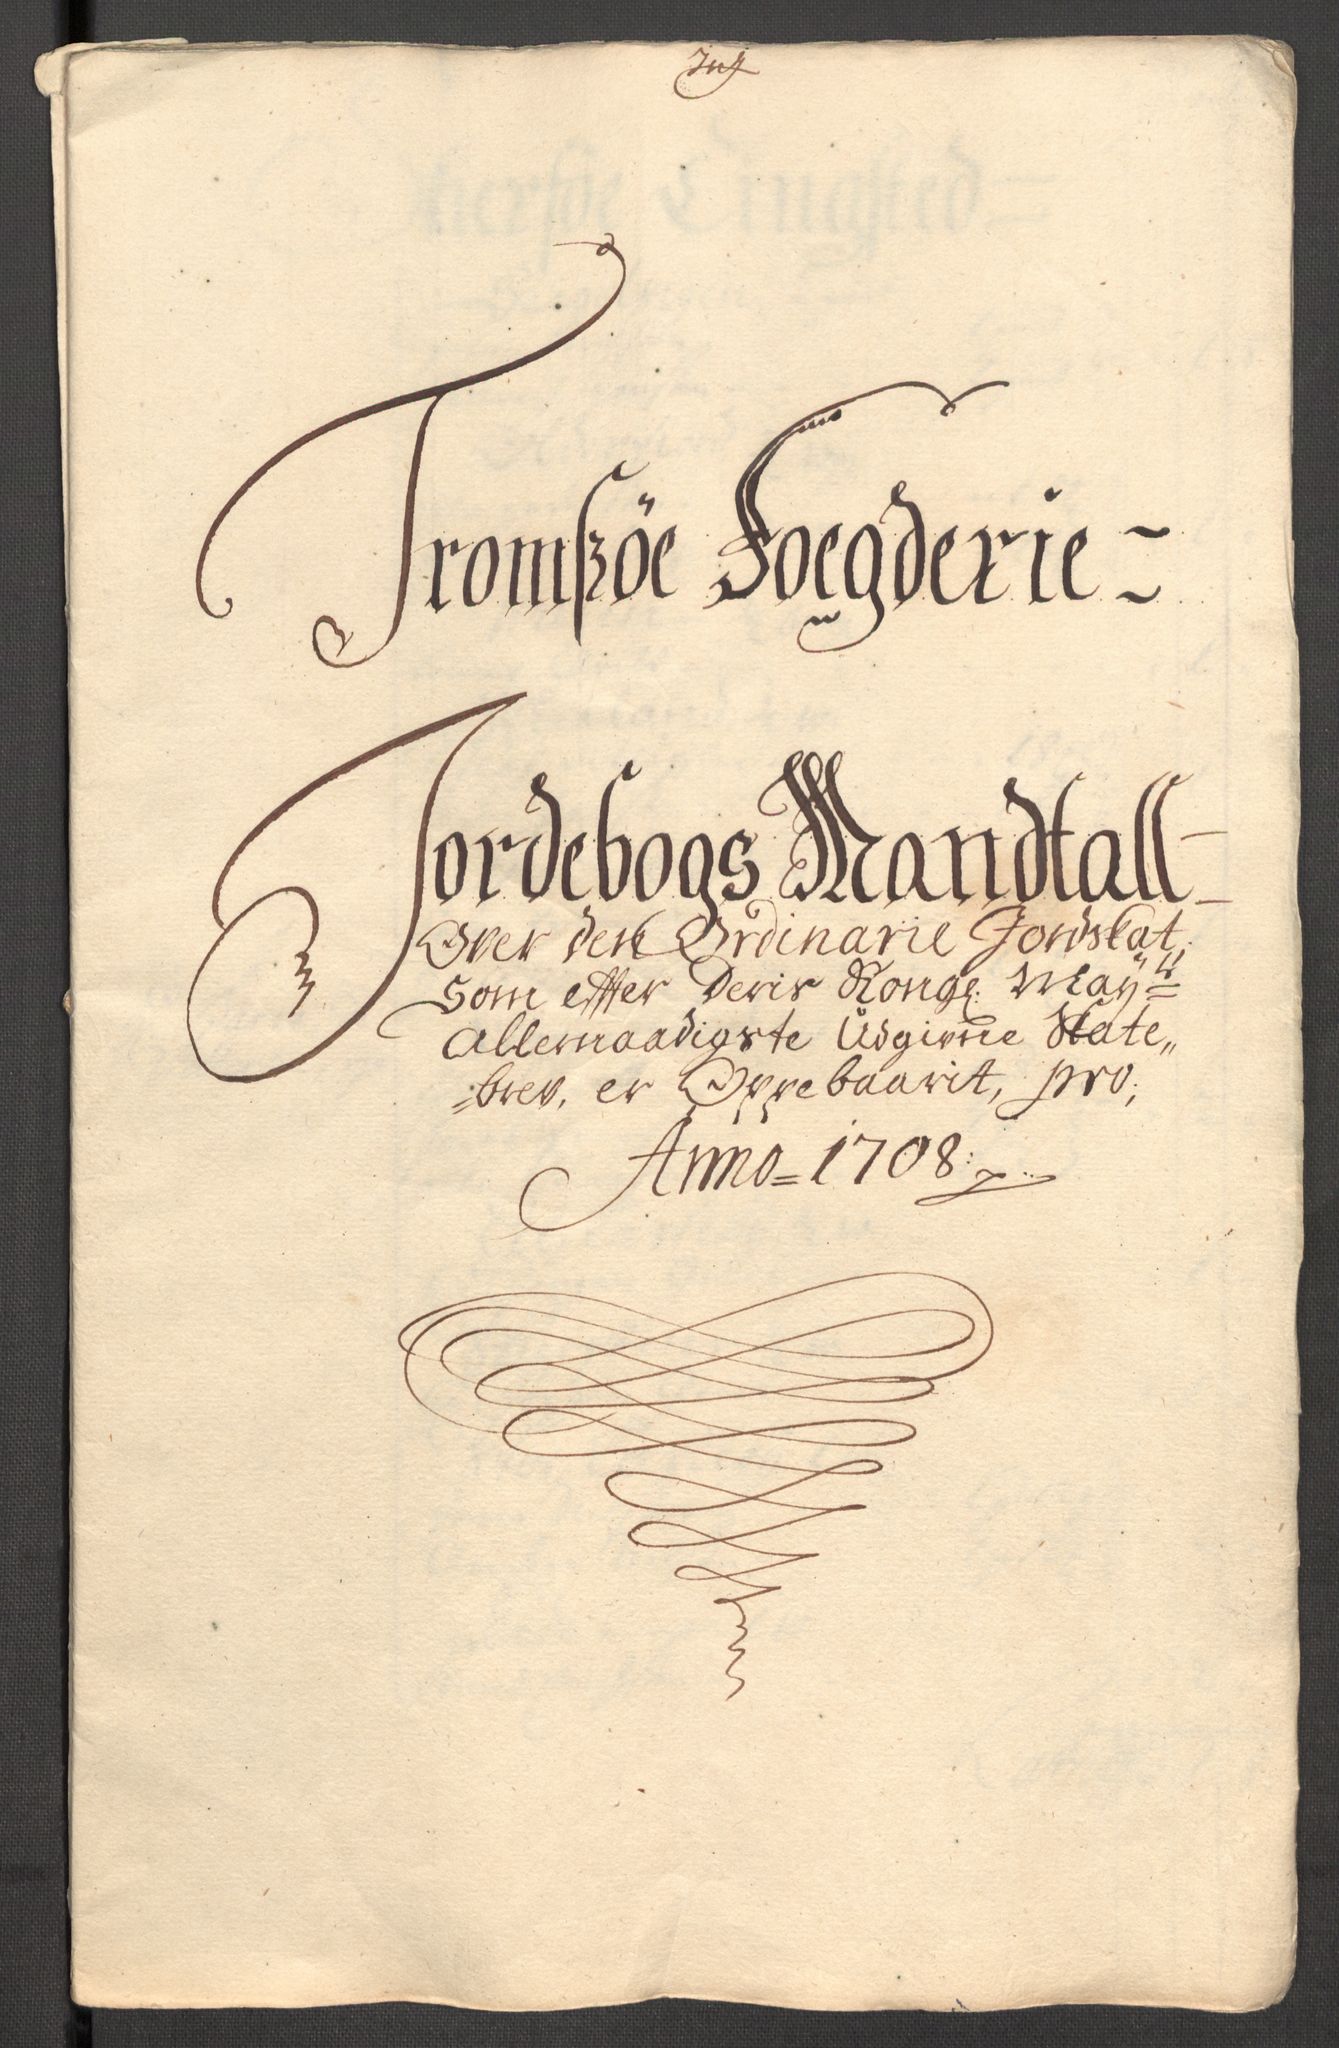 Tromszöe Foegderie
Jordebogs Mandtall
Over den Ordinarie Jordskat,
Som effter Deris Kongl: Mayts
Allernaadigste Udgivne Skate-
brev, er Oppebaarit, pro,
Anno 1708